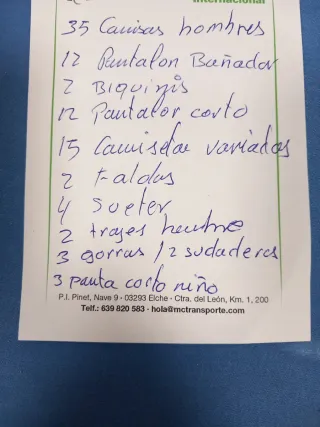 internacional
35 Camisas hombres
12 Pantalon Bañador
2 Biquinis
12 Pantalon corto
15 Camisetas variadas
2 Faldas
4 Sueter
2 trajes hombre
3 gorras / 2 sudaderas
3 panta corto niño
P.I. Pinet, Nave 9 · 03293 Elche · Ctra. del León, Km. 1, 200
Telf.: 639 820 583 · hola@mctransporte.com